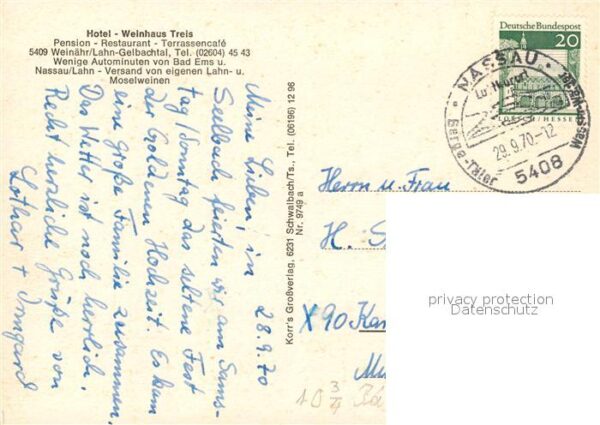 Hotel - Weinhaus Treis
Pension - Restaurant - Terrassencafé
5409 Weinähr/Lahn-Gelbachtal, Tel. (02604) 45 43
Wenige Autominuten von Bad Ems u.
Nassau/Lahn - Versand von eigenen Lahn- u.
Moselweinen
28.9.70
Meine Lieben, in
Seelbach feierten wir am Sams-
tag/Sonntag das seltene Fest
der Goldenen Hochzeit. Es kam
eine große Familie zusammen,
Das Wetter ist noch herrlich.
Recht herzliche Grüße von
Lothar + Irmgard
Korr's Großverlag, 6231 Schwalbach/Ts., Tel. (06196) 12 96
Nr. 9749 a
Deutsche Bundespost
20
LORSCH/HESSEN
NASSAU
Luftkurort
Berge - Täler
Wasser - Wälder
29.9.70-12
5408
Herrn u. Frau
H. S
X90 Kar
privacy protection
Datenschutz
10 3/4